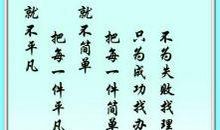 不为失败找理
只为成功找办
把每一件简单
就不简单
把每一件平凡
就不平凡